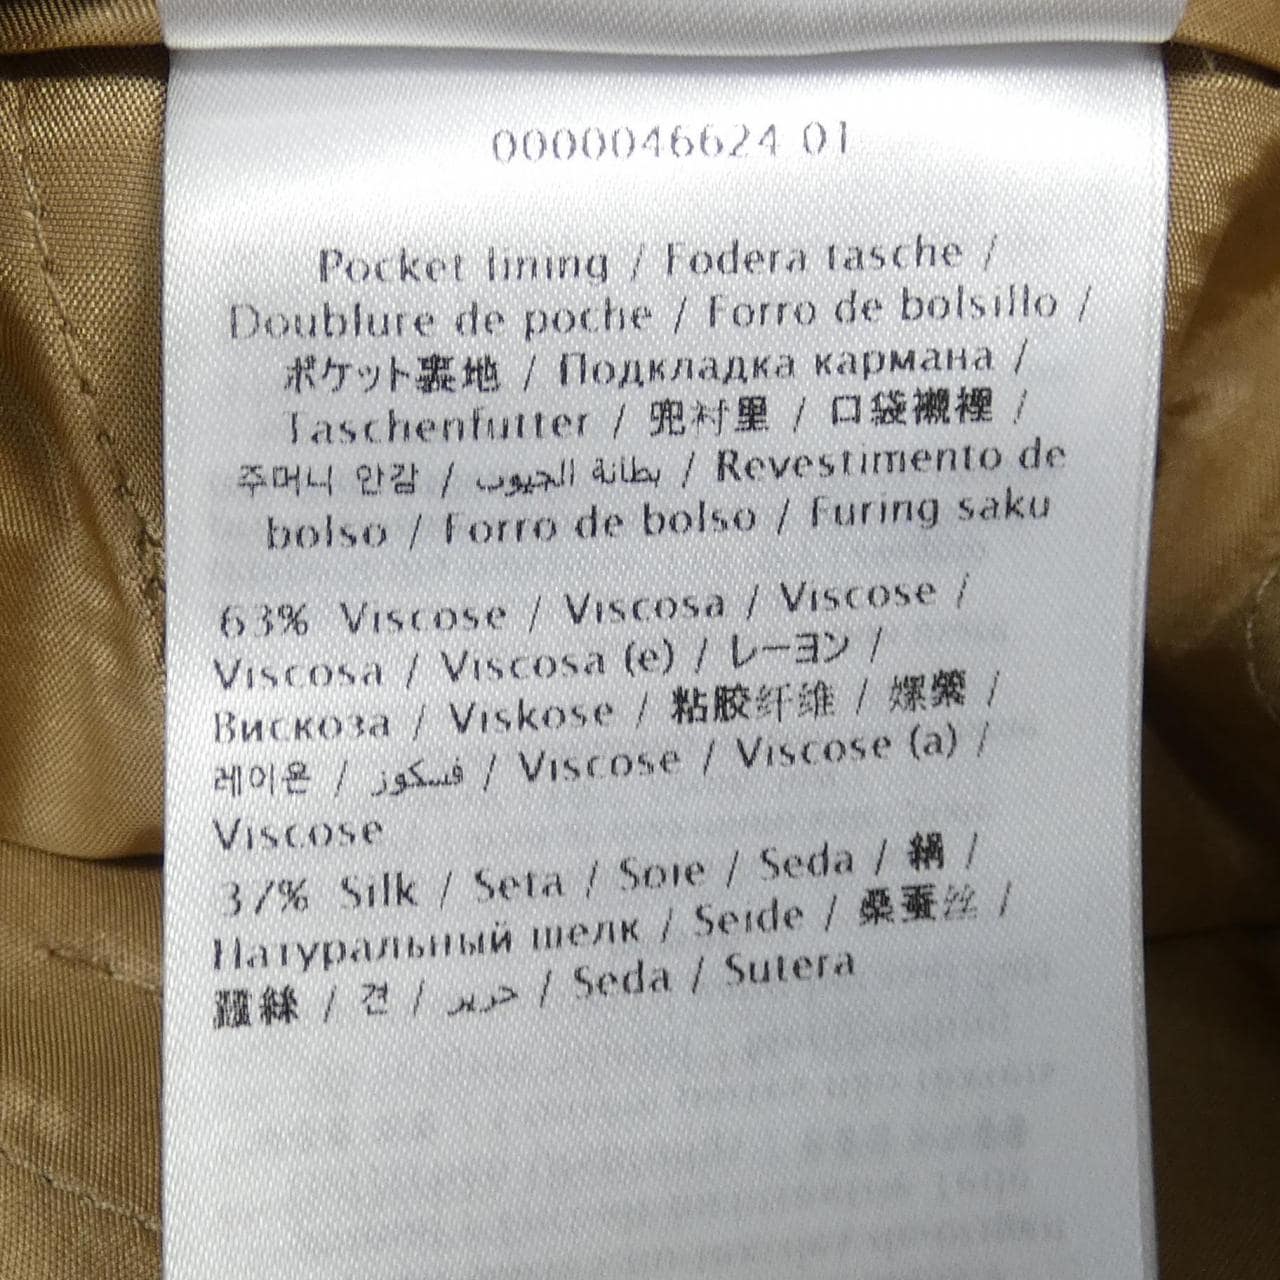 0000046624 01
Pocket lining / Fodera tasche /
Doublure de poche / Forro de bolsillo /
ポケット裏地 / Подкладка кармана /
Taschenfutter / 兜衬里 / 口袋襯裡 /
주머니 안감 / بطانة الجيوب / Revestimento de
bolso / Forro de bolso / Furing saku
63% Viscose / Viscosa / Viscose /
Viscosa / Viscosa (e) / レーヨン /
Вискоза / Viskose / 粘胶纤维 / 嫘縈 /
레이온 / فسكوز / Viscose / Viscose (a) /
Viscose
37% Silk / Seta / Soie / Seda / 絹 /
Натуральный шелк / Seide / 桑蚕丝 /
蠶絲 / 견 / حرير / Seda / Sutera